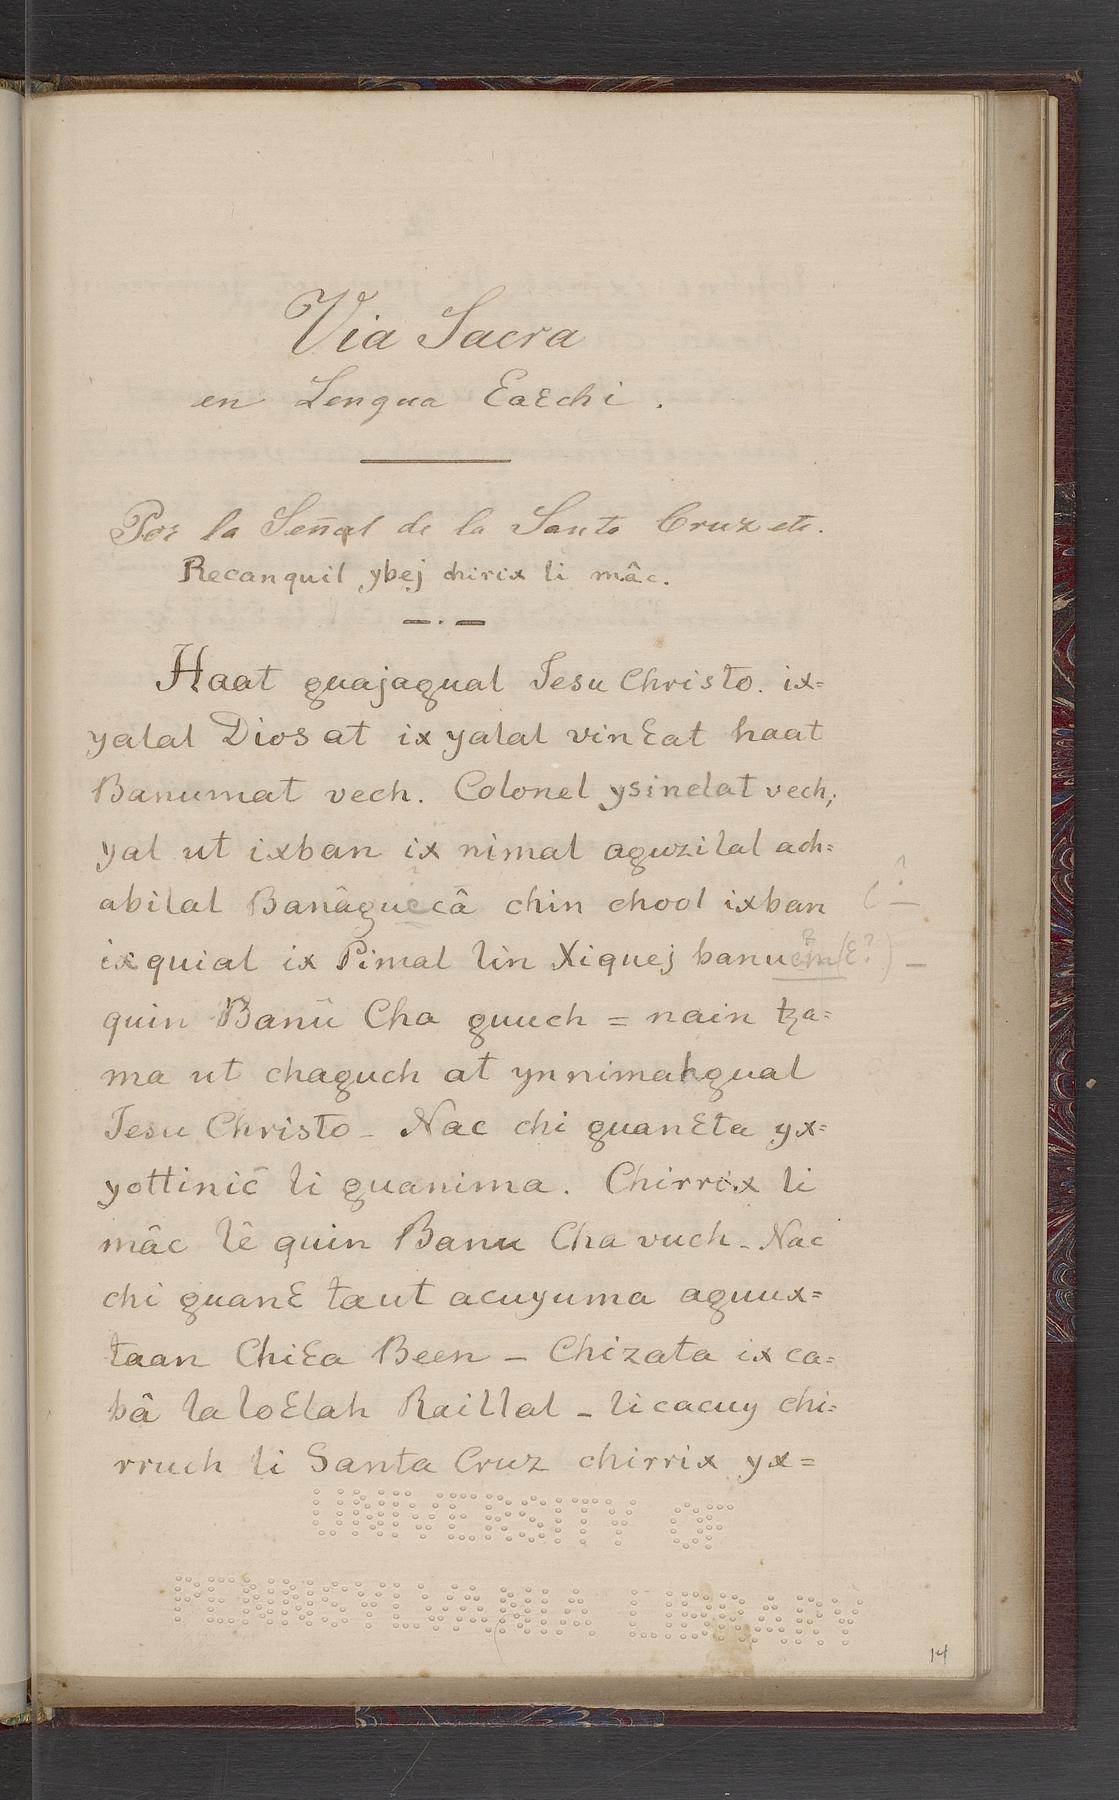 Via Sacra
en Lengua Ɛaɛchi .
Por la Señal de la Santa Cruz etc.
Recanquil ybej chirix li mâc.
Haat guajagual Jesu Christo. ix=
yalal Dios at ix yalal vinɛat haat
Banumat vech. Colonel ysinelat vech;
yal ut ixban ix nimal aguzilal ach=
abilal Banâguêcâ chin chool ixban (?
ix quial ix Pimal lin Xiquej banuem (ɛ?)
quin Banû Cha guuch = nain tza=
ma ut chaguch at yn nimahgual
Jesu Christo - Nac chi guanɛta yx=
yottinic̄ li guanima. Chirrix li
mâc lê quin Banu Cha vuch - Nac
chi guanɛ taut acuyuma aguux=
taan Chiɛa Been - Chizata ix ca=
bâ la loɛlah Raillal - li cacuy chi=
rruch li Santa Cruz chirrix yx=
UNIVERSITY OF
PENNSYLVANIA LIBRARY
14